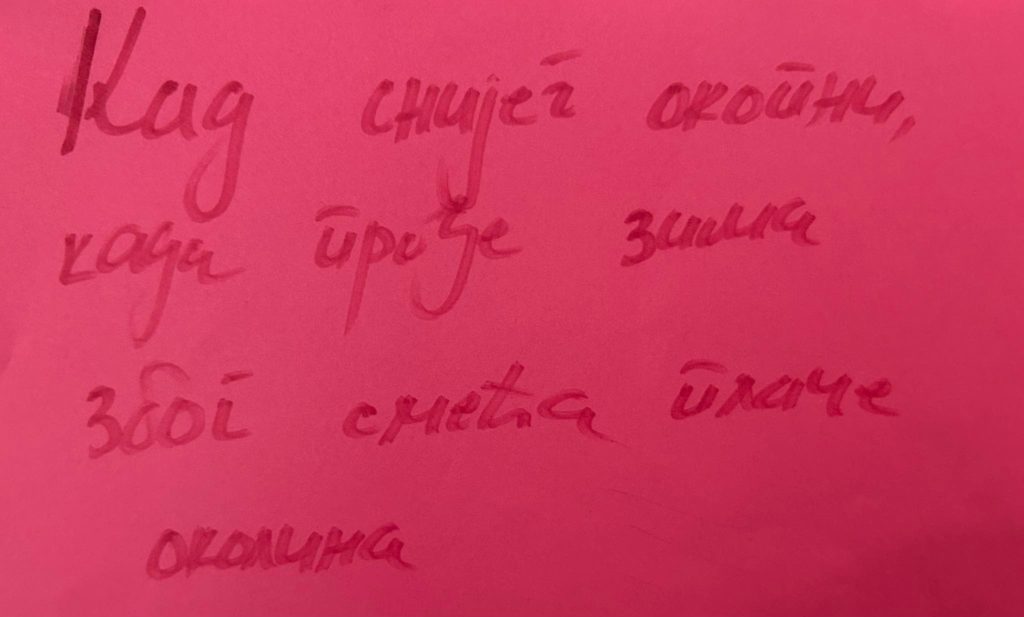 Кад снијег окопни,
када прође зима
због смећа плаче
околина